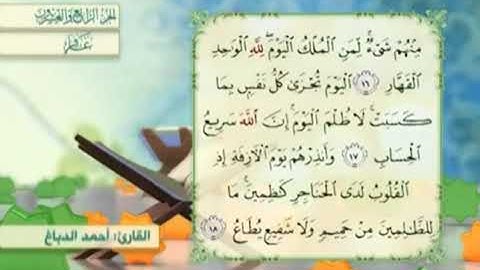 الجزء الرابع والعشرون
غافر
مِنْهُمْ شَىْءٌ ۚ لِّمَنِ ٱلْمُلْكُ ٱلْيَوْمَ ۖ لِلَّهِ ٱلْوَٰحِدِ
ٱلْقَهَّارِ ١٦ ٱلْيَوْمَ تُجْزَىٰ كُلُّ نَفْسٍۭ بِمَا
كَسَبَتْ ۚ لَا ظُلْمَ ٱلْيَوْمَ ۚ إِنَّ ٱللَّهَ سَرِيعُ
ٱلْحِسَابِ ١٧ وَأَنذِرْهُمْ يَوْمَ ٱلْءَازِفَةِ إِذِ
ٱلْقُلُوبُ لَدَى ٱلْحَنَاجِرِ كَٰظِمِينَ ۚ مَا
لِلظَّٰلِمِينَ مِنْ حَمِيمٍ وَلَا شَفِيعٍ يُطَاعُ ١٨
القارئ: أحمد الدباغ